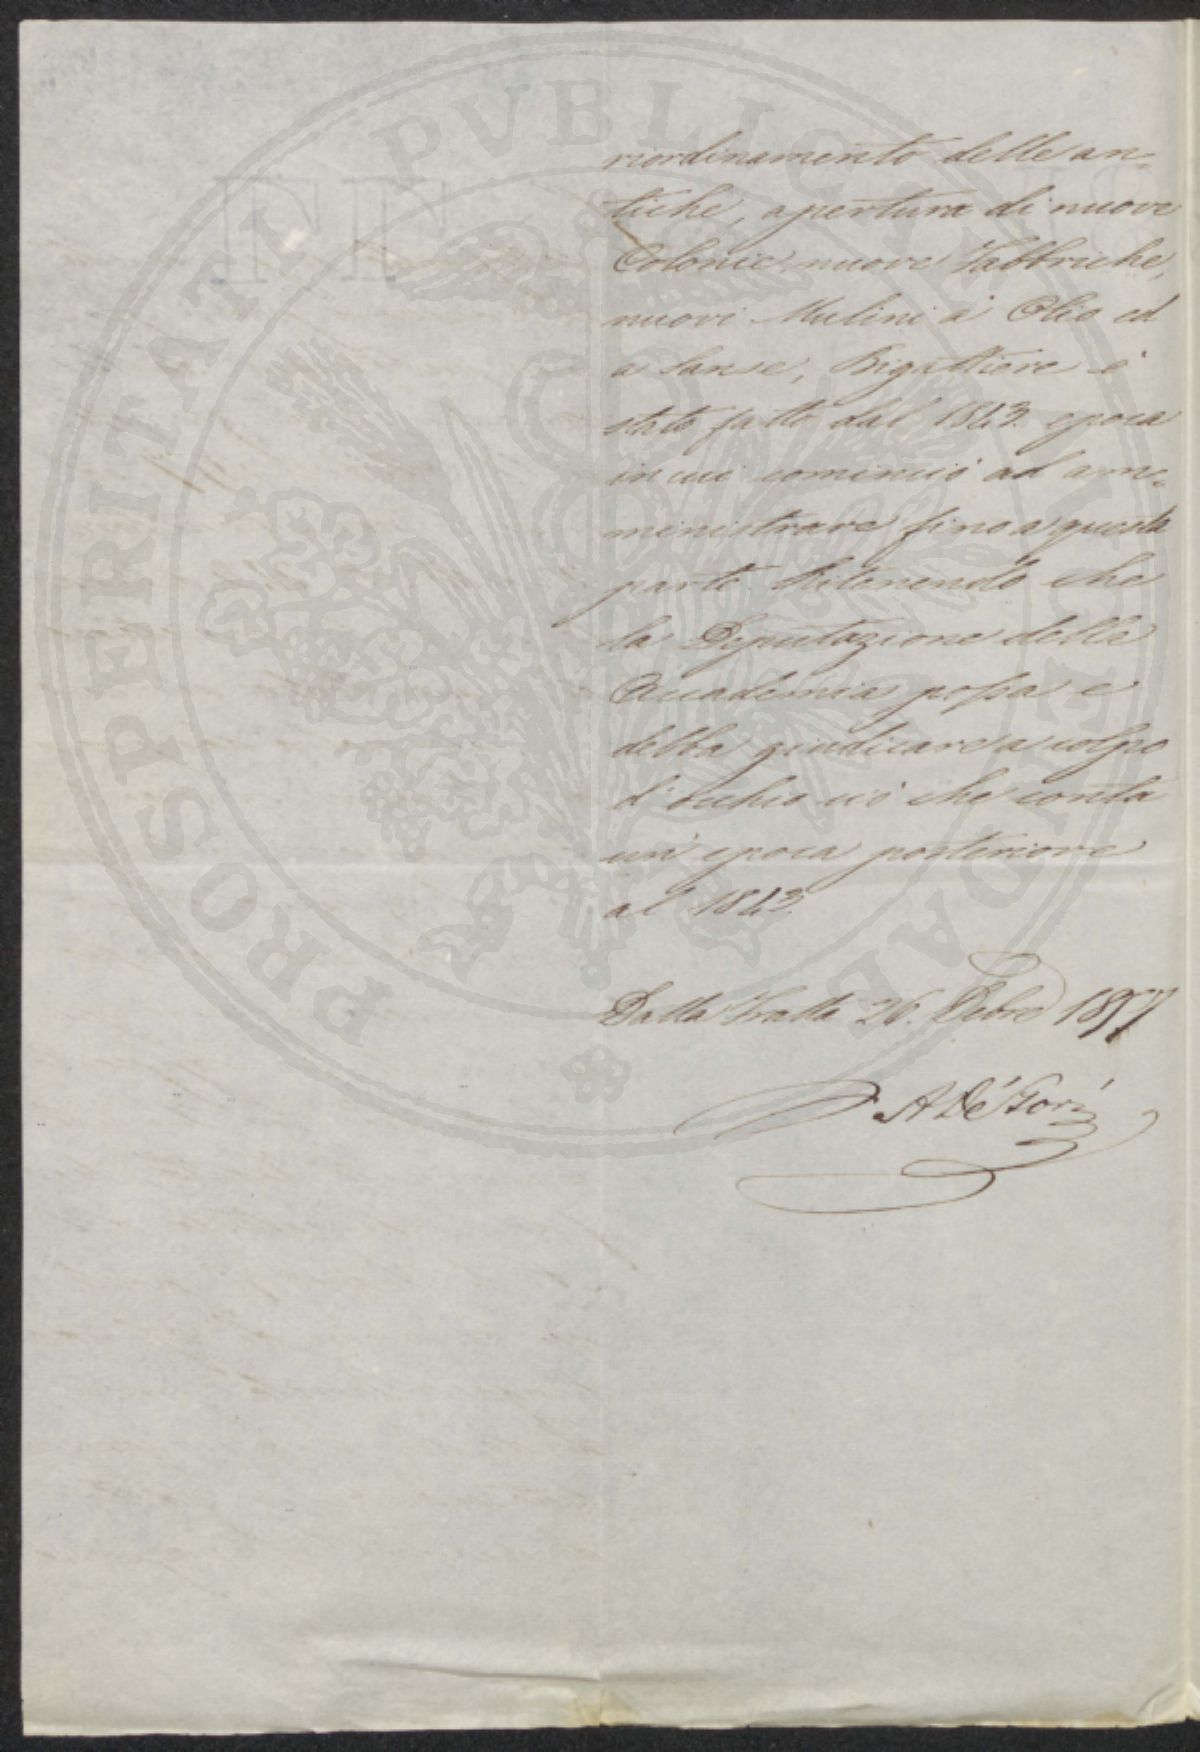 riordinamento delle an=
tiche, apertura di nuove
Colonie nuove Fabbriche,
nuovi Mulini a Olio ed
a Sanse, Bigattiere è
stato fatto dal 1843. epoca
in cui cominciò ad am=
ministrare fino a questa
parte. Ritenendo che
la Deputazione della
Accademia possa e
debba giudicare a colpo
d'occhio ciò che conta
un'epoca posteriore
al 1843.
Dalla Tratta 26. 1857
A De' Gori
PROSPERITATI PVBLICAE AVGENDAE